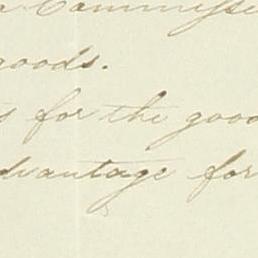 a Commisse
goods.
s for the good
dvantage for